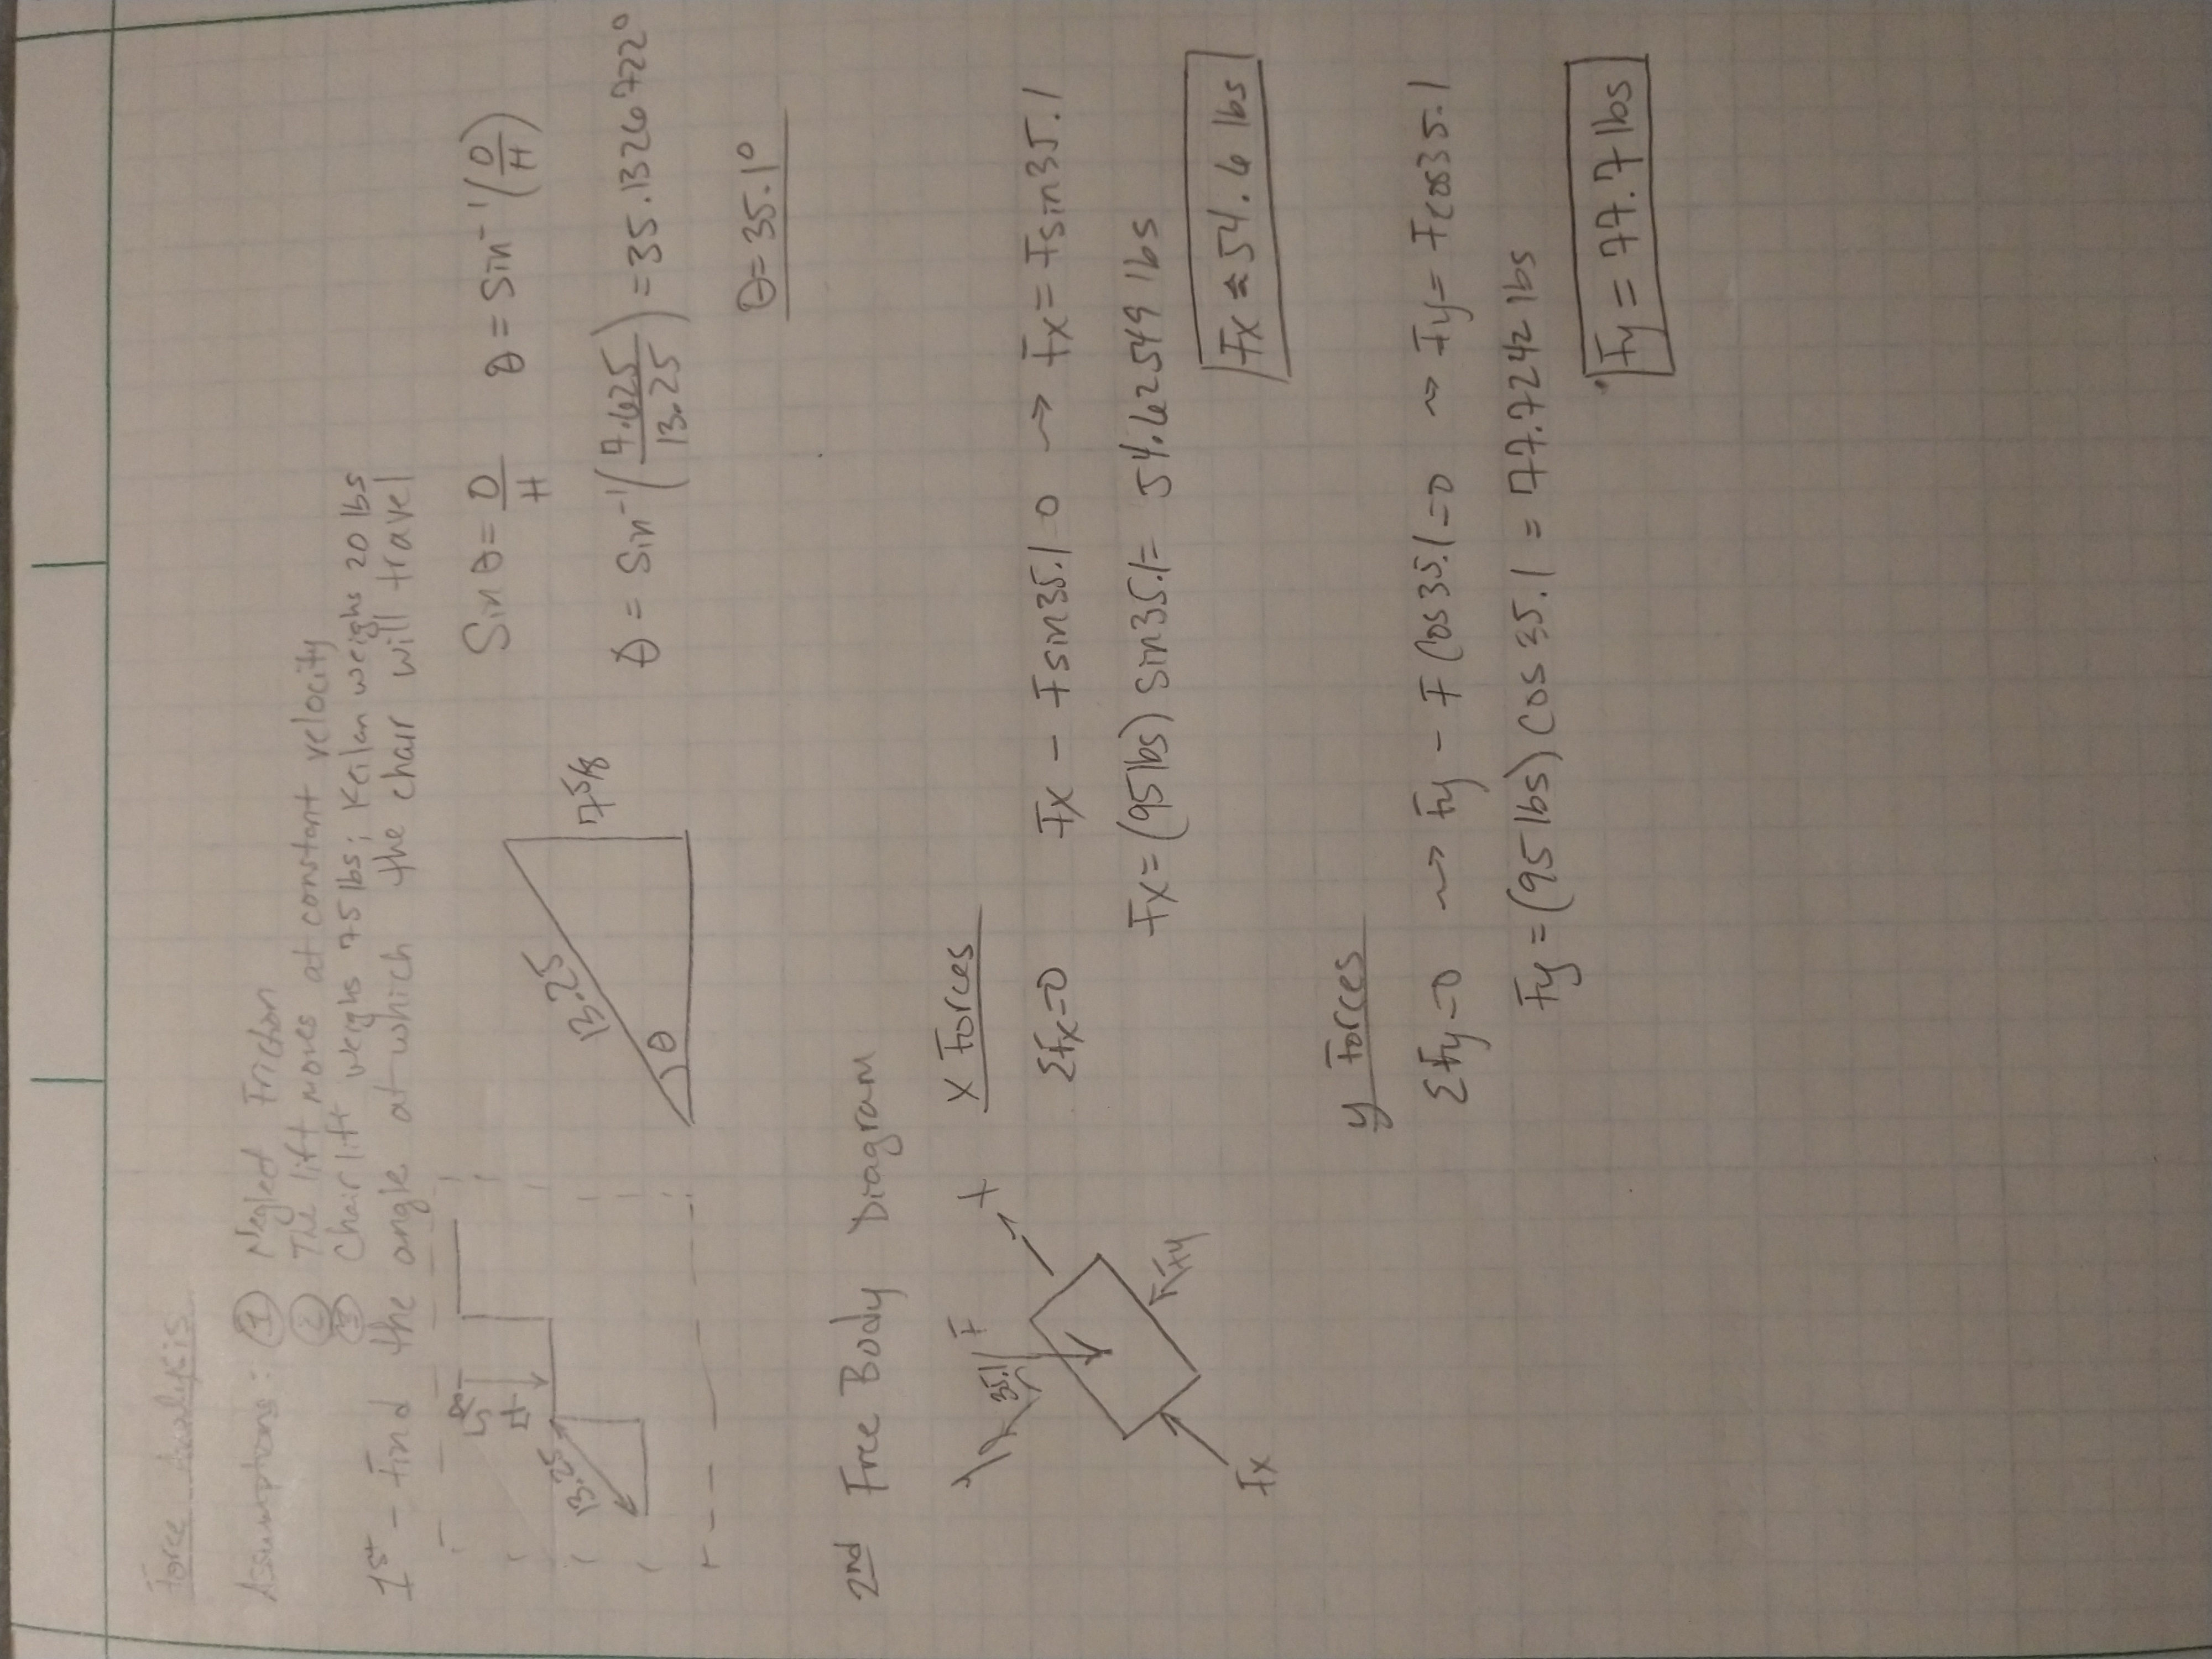 Force Analysis
Assumptions: ① Neglect Friction
② The lift moves at constant velocity
③ Chair lift weighs 75 lbs; Keilan weighs 20 lbs
1st - Find the angle at which the chair will travel
7 5/8
13.25
13.25
7 5/8
θ
Sin θ = O/H θ = Sin⁻¹(O/H)
θ = Sin⁻¹(7.625/13.25) = 35.1326722°
θ = 35.1°
2nd Free Body Diagram
y 35.1 F x
Fy
Fx
X Forces
ΣFx=0 Fx - Fsin35.1 0 → Fx = Fsin35.1
Fx = (95lbs) sin35.1= 54.62549 lbs
Fx ≈ 54.6 lbs
y Forces
ΣFy=0 → Fy - F Cos35.1=0 → Fy= Fcos35.1
Fy = (95 lbs) Cos 35.1 = 77.7242 lbs
Fy = 77.7 lbs